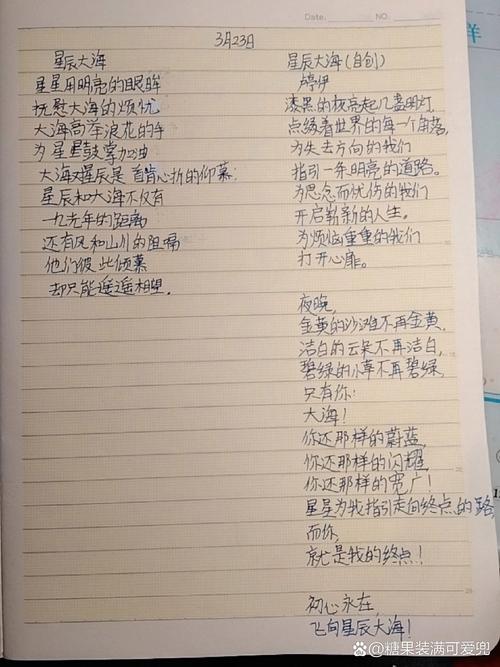 Date.
NO.
3月23日
星辰大海
星星用明亮的眼眸
抚慰大海的烦忧
大海高举浪花的手
为星星鼓掌加油
大海对星辰是首肯心折的仰慕
星辰和大海不仅有
一光年的距离
还有风和山川的阻隔
他们彼此倾慕
却只能遥遥相望.
星辰大海(自创)
卢伊
漆黑的夜亮起几盏明灯,
点缀着世界的每一个角落,
为失去方向的我们
指引一条明亮的道路。
为思念而忧伤的我们
开启崭新的人生。
为烦恼重重的我们
打开心扉。
夜晚,
金黄的沙滩不再金黄,
洁白的云朵不再洁白,
碧绿的小草不再碧绿,
只有你:
大海!
你还那样的蔚蓝,
你还那样的闪耀,
你还那样的宽广!
星星为我指引走向终点的路,
而你,
就是我的终点!
初心永在,
飞向星辰大海!
知乎 @糖果装满可爱兜